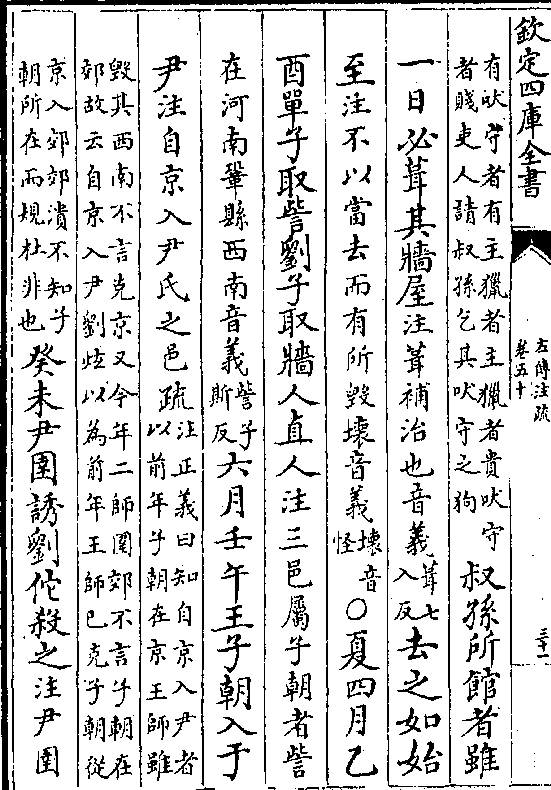 欽定四庫全書
左傳注疏
卷五十
三十一
有吠守者有主獵者主獵者貴吠守
者賤吏人請叔孫乞其吠守之狗
叔孫所館者雖
一日必葺其牆屋注葺補治也音義
葺七
入反
去之如始
至注不以當去而有所毀壞音義
壞音
怪
○夏四月乙
酉單子取訾劉子取牆人直人注三邑屬子朝者訾
在河南鞏縣西南音義
訾子
斯反
六月壬午王子朝入于
尹注自京入尹氏之邑疏
注正義曰知自京入尹者
以前年子朝在京王師雖
毀其西南不言克京又今年二師圍郊不言子朝在
郊故云自京入尹劉炫以為前年王師已克子朝從
京入郊郊潰不知子
朝所在而規杜非也
癸未尹圉誘劉佗殺之注尹圉